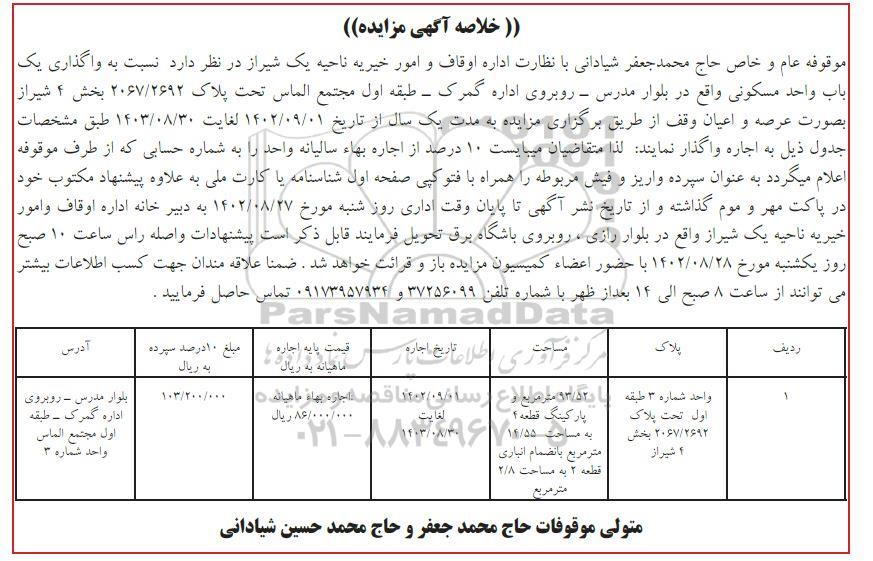 (( خلاصه آگهی مزایده))
موقوفه عام و خاص حاج محمدجعفر شیادانی با نظارت اداره اوقاف و امور خیریه ناحیه یک شیراز در نظر دارد نسبت به واگذاری یک
باب واحد مسکونی واقع در بلوار مدرس – روبروی اداره گمرک – طبقه اول مجتمع الماس تحت پلاک ۲۰۶۷/۲۶۹۲ بخش ۴ شیراز
بصورت عرصه و اعیان وقف از طریق برگزاری مزایده به مدت یک سال از تاریخ ۱۴۰۲/۰۹/۰۱ لغایت ۱۴۰۳/۰۸/۳۰ طبق مشخصات
جدول ذیل به اجاره واگذار نمایند: لذا متقاضیان میبایست ۱۰ درصد از اجاره بهاء سالیانه واحد را به شماره حسابی که از طرف موقوفه
اعلام میگردد به عنوان سپرده واریز و فیش مربوطه را همراه با فتوکپی صفحه اول شناسنامه یا کارت ملی به علاوه پیشنهاد مکتوب خود
در پاکت مهر و موم گذاشته و از تاریخ نشر آگهی تا پایان وقت اداری روز شنبه مورخ ۱۴۰۲/۰۸/۲۷ به دبیر خانه اداره اوقاف وامور
خیریه ناحیه یک شیراز واقع در بلوار رازی ، روبروی باشگاه برق تحویل فرمایند قابل ذکر است پیشنهادات واصله راس ساعت ۱۰ صبح
روز یکشنبه مورخ ۱۴۰۲/۰۸/۲۸ با حضور اعضاء کمیسیون مزایده باز و قرائت خواهد شد . ضمنا علاقه مندان جهت کسب اطلاعات بیشتر
می توانند از ساعت ۸ صبح الی ۱۴ بعداز ظهر با شماره تلفن ۳۷۲۵۶۰۹۹ و ۰۹۱۷۳۹۵۷۹۳۴ تماس حاصل فرمایید .
ParsNamadData
مرکز فرآوری اطلاعات پارس نماد داده ها
پایگاه اطلاع رسانی مناقصه و مزایده
۰۲۱-۸۸۳۴۹۶۷۰-۵
ردیف پلاک مساحت تاریخ اجاره قیمت پایه اجاره مبلغ ۱۰درصد سپرده آدرس
ماهیانه به ریال به ریال
۱ واحد شماره ۳ طبقه ۹۳/۵۲ مترمربع و ۱۴۰۲/۰۹/۰۱ اجاره بهاء ماهیانه: ۱۰۳/۲۰۰/۰۰۰ بلوار مدرس – روبروی
اول تحت پلاک پارکینگ قطعه۴ لغایت ۸۶/۰۰۰/۰۰۰ ریال اداره گمرک – طبقه
۲۰۶۷/۲۶۹۲ بخش به مساحت ۱۴/۵۵ ۱۴۰۳/۰۸/۳۰ اول مجتمع الماس
۴ شیراز مترمربع بانضمام انباری واحد شماره ۳
قطعه ۲ به مساحت ۲/۸
مترمربع
متولی موقوفات حاج محمد جعفر و حاج محمد حسین شیادانی